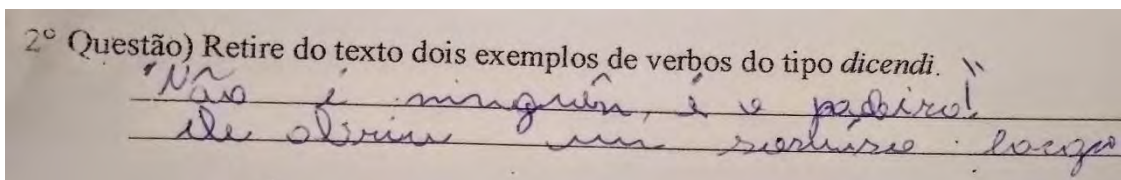 2º Questão) Retire do texto dois exemplos de verbos do tipo dicendi.
"Não é ninguém, é o padeiro!"
ele abriu um sorriso largo